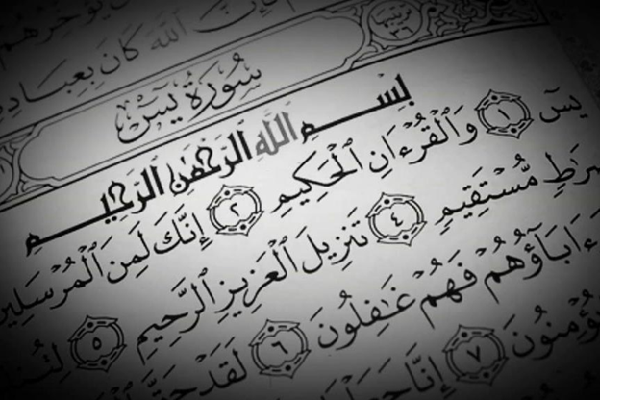 الله كان بعباد
سُورَةُ يسٓ
بِسْمِ ٱللَّهِ ٱلرَّحْمَٰنِ ٱلرَّحِيمِ
يسٓ ١ وَٱلْقُرْءَانِ ٱلْحَكِيمِ ٢ إِنَّكَ لَمِنَ ٱلْمُرْسَلِين
صِرَٰطٍ مُّسْتَقِيمٍ ٤ تَنزِيلَ ٱلْعَزِيزِ ٱلرَّحِيمِ ٥
ءَابَآؤُهُمْ فَهُمْ غَٰفِلُونَ ٦ لَقَدْ
يُؤْمِنُونَ ٧ إِنَّا